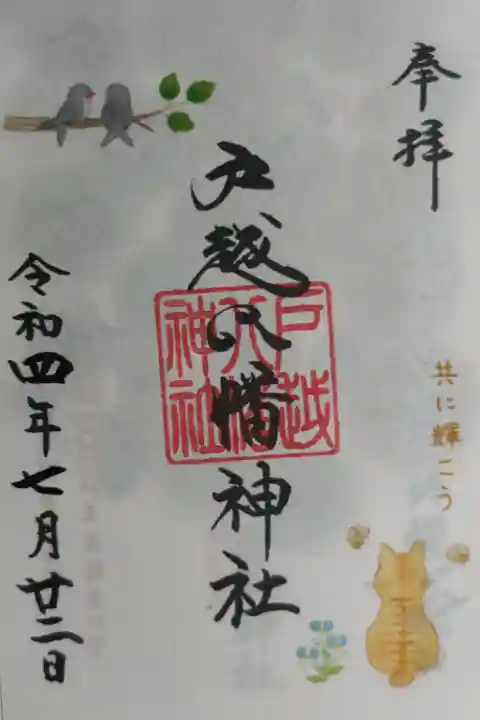 奉拝
戸越八幡神社
戸越
八幡
神社
共に輝こう
令和四年七月廿二日